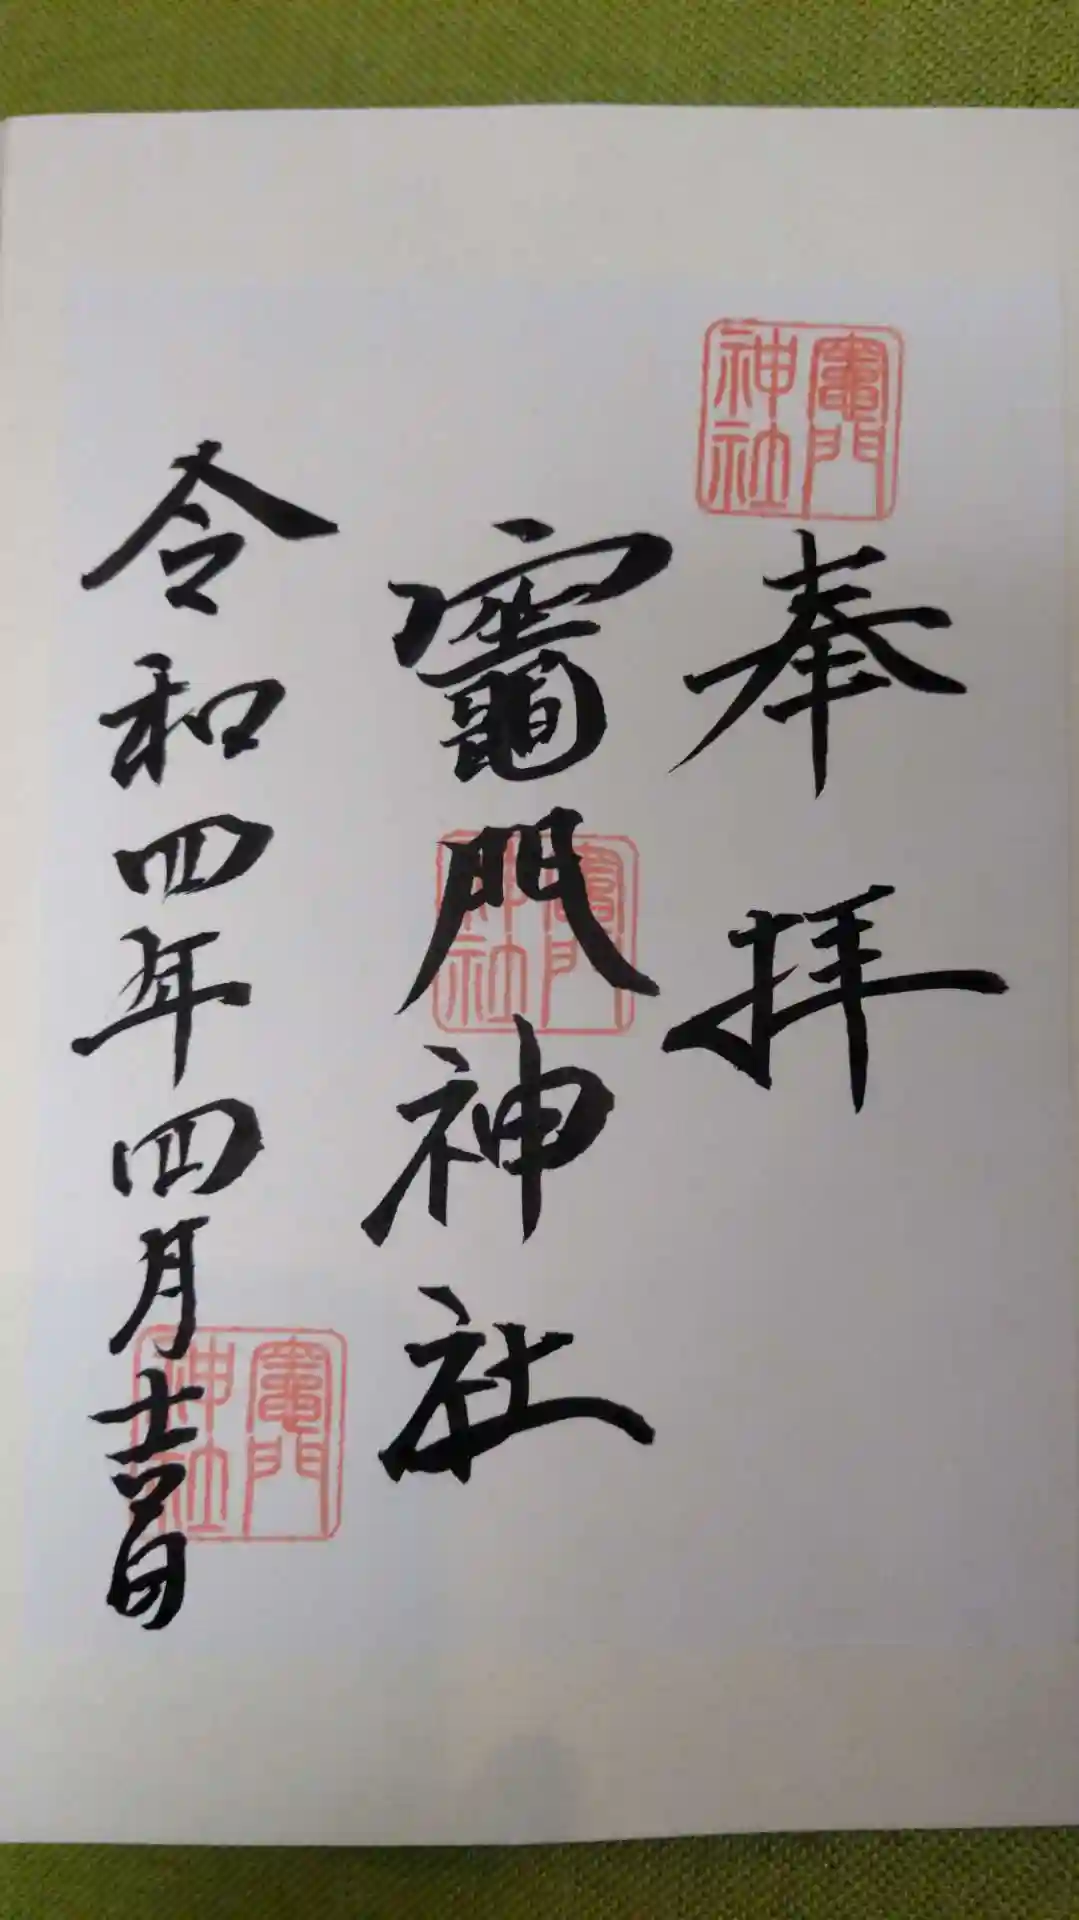 竈門神社
奉拝
竈門神社
竈門神社
令和四年四月
竈門神社